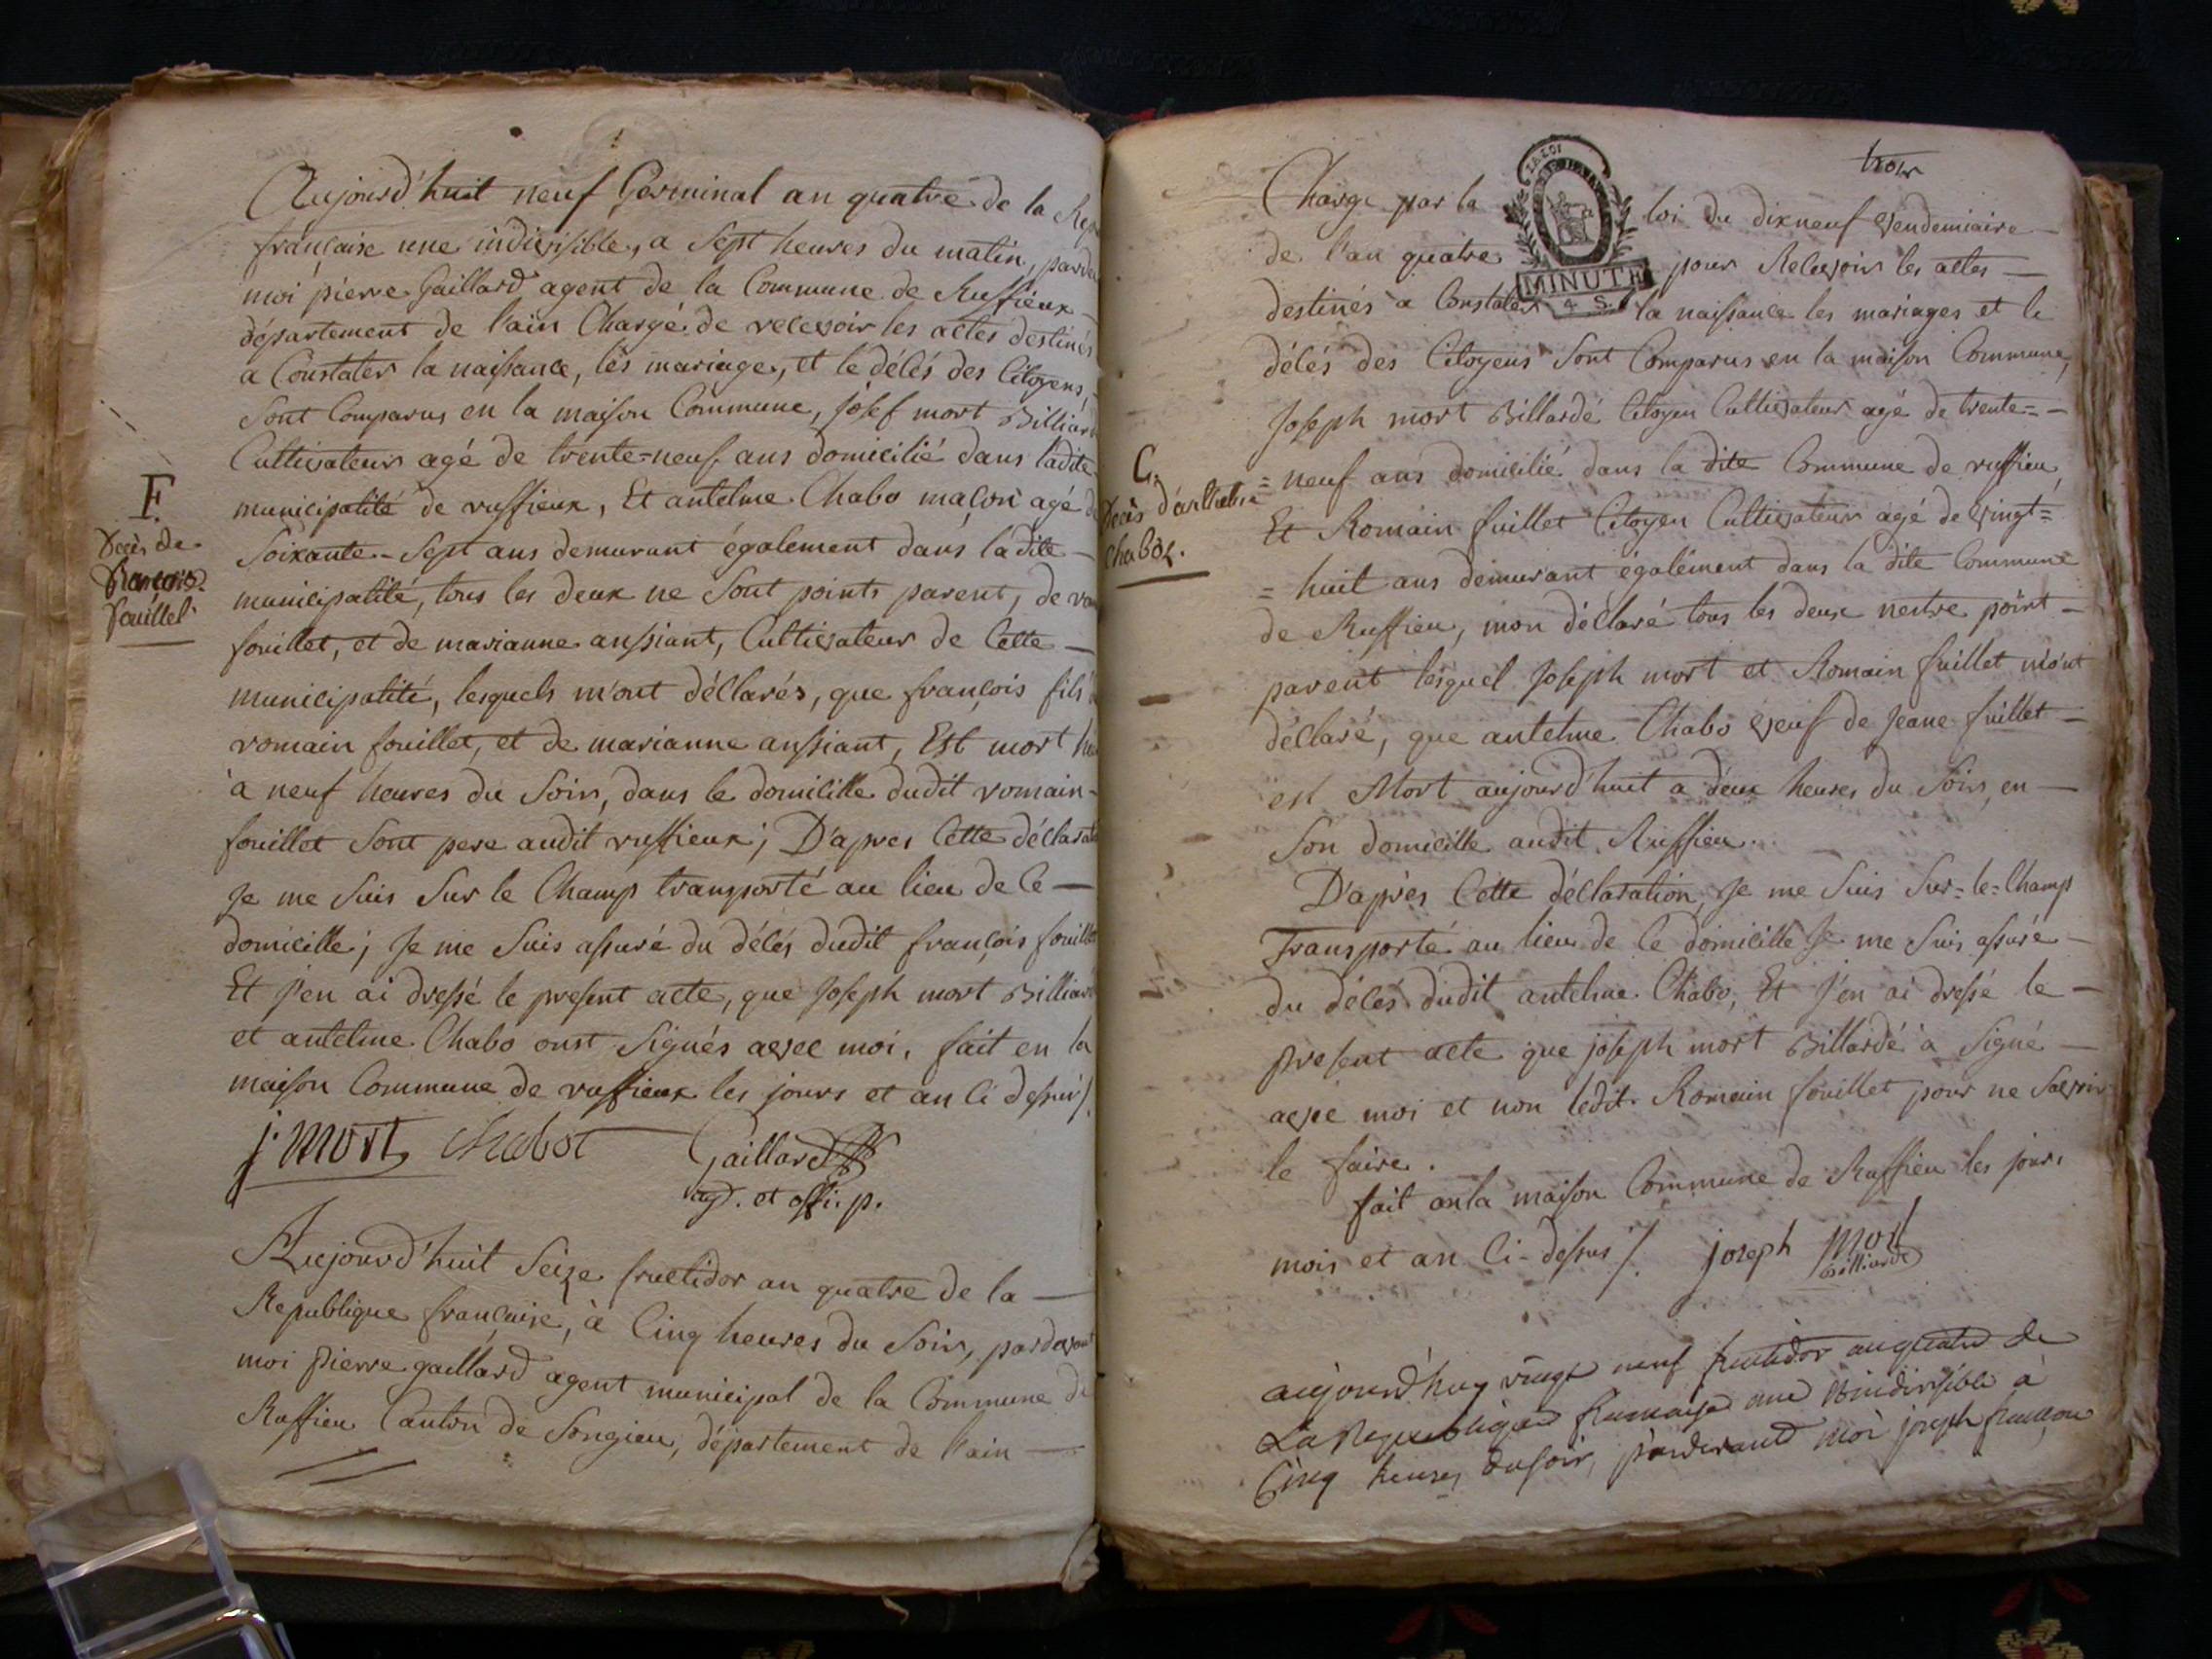 Aujourd'huit neuf Germinal an quatre de la Rep
française une indivisible, a Sept heures du matin, parde
moi pierre Gaillard agent de la Commune de Ruffieux
département de l'ain Chargé de recevoir les actes destinés
a Constater la naissance, les mariage, et le décés des Citoyens,
Sont Comparus en la maison Commune, Josef mort Billiard
Cultivateur agé de trente-neuf ans domicilié dans ladite
F.
municipalité de ruffieux, Et antelme Chabo maçon agé de
Decès de
Soixante-Sept ans demurant également dans la dite
françois
municipalité, tous les deux ne Sont points parent, de
fouillet
fouillet, et de marianne anssiant, Cultivateur de Cette
municipalité, lesquels m'ont déclarés, que françois fils
romain fouillet, et de marianne anssiant, Est mort
à neuf heures du Soir, dans le domicille dudit romain
fouillet Sont pere audit ruffieux; D'apres Cette déclarat
Je me Suis Sur le Champ transporté au lieu de Ce
domicille; Je me Suis assuré du décés dudit françois fouillet
Et j'en ai dressé le present acte, que Joseph mort Billiard
et antelme Chabo onst Signés avec moi, fait en la
maison Commune de ruffieux les jours et an Ci dessus/.
j. mort Chabot Gaillard
ag. et offi. p.
Aujourd'huit Seize fructidor an quatre de la
Republique française, à Cinq heures du Soir, pardevant
moi Pierre gaillard agent municipal de la Commune de
Ruffieu Canton de Songieu, département de l'ain
trois
Chargé par la loi du dixneuf vendemiaire
LA LOI
de l'an quatre pour Recevoir les actes
MINUTE
4 S.
destinés a Constater la naissance les mariages et le
décés des Citoyens Sont Comparus en la maison Commune,
Joseph mort Billardé Citoyen Cultivateur agé de trente=
C.
= neuf ans domicilié dans la dite Commune de ruffieu,
Decès d'anthelme
Et Romain fuillet Citoyen Cultivateur agé de vingt=
Chabot.
= huit ans démurant également dans la dite Commune
de Ruffieu, mon déclaré tous les deux nestre point
parent lesquel Joseph mort et Romain fuillet m'ont
déclaré, que antelme Chabo veuf de Jeane fuillet
est Mort aujourd'huit a deux heures du Soir, en
Son domicille audit Ruffieu.
D'après Cette déclaration, Je me Suis Sur=le=Champ
Transporté au lieu de Ce domicille Je me Suis assuré
du décés dudit antelme Chabo, Et J'en ai dressé le
present acte que joseph mort Billardé à Signé
avec moi et non lédit Romain fouillet pour ne Savoir
le faire.
fait en la maison Commune de Ruffieu les jours
mois et an Ci-dessus /. joseph Mort
Billiardé
aujourd'huy vingt neuf fructidor an quatre de
La Republique francaise une indivisible à
Cinq heures du soir, pardevant moi joseph